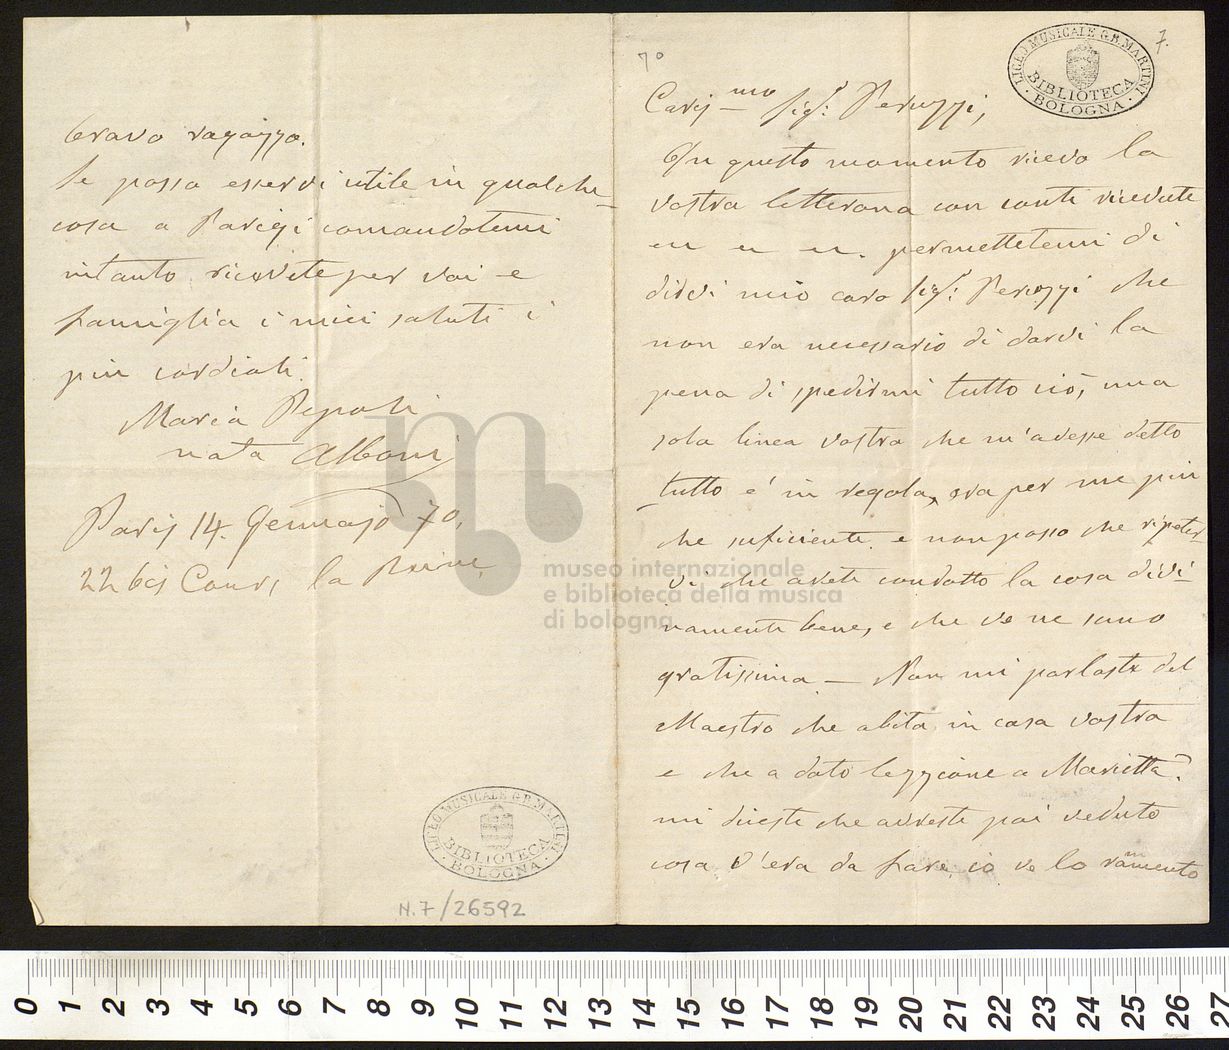 7º
7.
LICEO MUSICALE G.B. MARTINI
BIBLIOTECA
BOLOGNA
Cariss.mo Sigr: Peruzzi,
In questo momento ricevo la
vostra letterona con conti ricevute
permettetemi di
dirvi mio caro Sigr: Peruzzi che
non era necessario di darvi la
pena di spedirmi tutto ciò, una
sola linea vostra che m'avesse detto
tutto e' in regola, era per me piu
che suficiente. e non posso che ripeter-
vi che avete condotto la cosa divi-
namente bene, e che ve ne sono
gratissima — Non mi parlaste del
Maestro che abita in casa vostra
e che a dato lezzione a Marietta?
mi diceste che avreste poi veduto
cosa v'era da fare, io ve lo rammento
bravo ragazzo.
Se posso esservi utile in qualche
cosa a Parigi comandatemi
intanto ricevete per voi e
famiglia i miei saluti i
piu cordiali.
Maria Pepoli
nata Alboni
Paris 14. Gennajo 70,
22 bis Cours la Reine,
LICEO MUSICALE G.B. MARTINI
BIBLIOTECA
BOLOGNA
N.7/26592
museo internazionale
e biblioteca della musica
di bologna
0 1 2 3 4 5 6 7 8 9 10 11 12 13 14 15 16 17 18 19 20 21 22 23 24 25 26 27